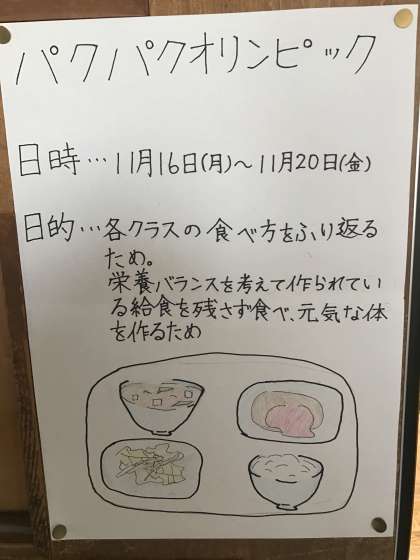 パクパクオリンピック
日時…11月16日(月)～11月20日(金)
目的…各クラスの食べ方をふり返る
ため。
栄養バランスを考えて作られてい
る給食を残さず食べ、元気な体
を作るため